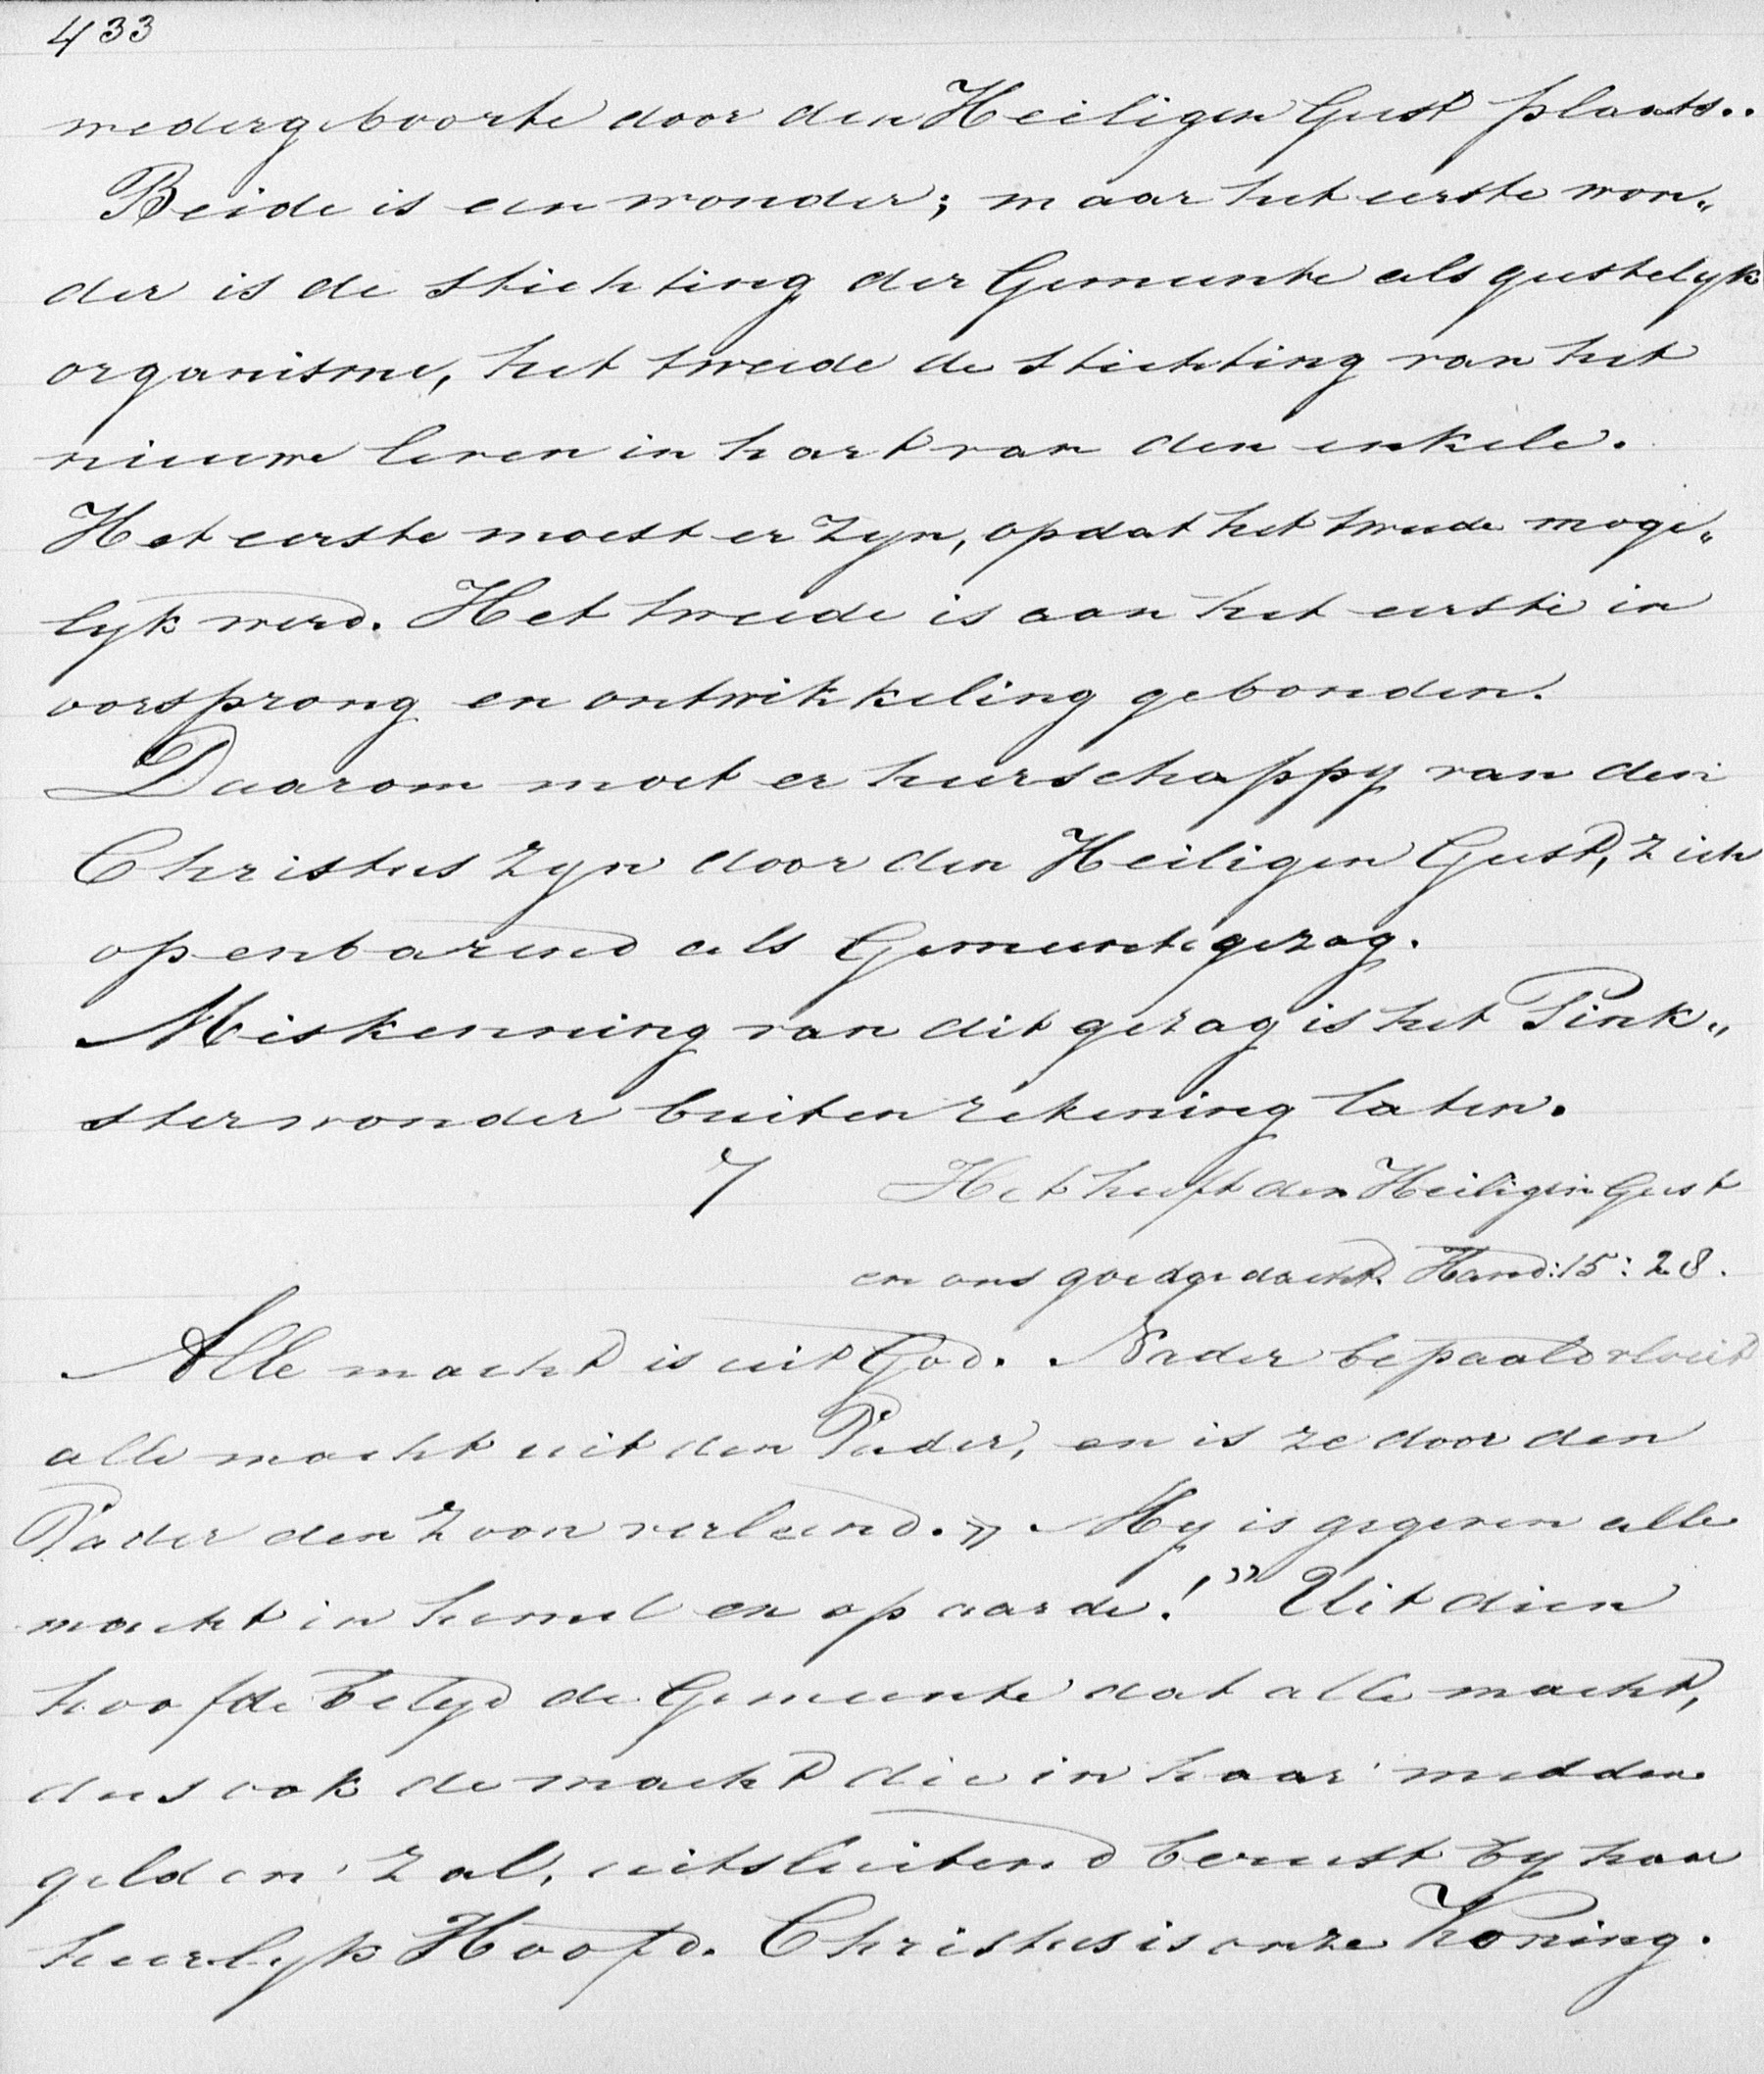 433
wedergeboorte door den Heiligen Geest plaats..
Beide is een wonder; maar het eerste won„
der is de stichting der Gemeente als geestelyk
organisme, het tweede de stichting van het
nieuwe leven in hart van den enkele.
Het eerste moest er zyn, opdat het tweede moge„
lyk werd. Het tweede is aan het eerste in
oorsprong en ontwikkeling gebonden.
Daarom moet er heerschappy van den
Christus zyn door den Heiligen Geest, zich
openbarend als Gemeentegezag.
Miskenning van dit gezag is het Pink„
sterwonder buiten rekening laten.
7 Het heeft den Heiligen Geest
en ons goedgedacht. Hand: 15: 28.
Alle macht is uit God. Nader bepaald vloeit
alle macht uit den Vader, en is ze door den
Vader den Zoon verleend. „My is gegeven alle
macht in hemel en op aarde!" Uit dien
hoofde belyd de Gemeente dat alle macht,
dus ook de macht die in haar midden
gelden zal, uitsluitend berust by haar
heerlyk Hoofd. Christus is onze Koning.